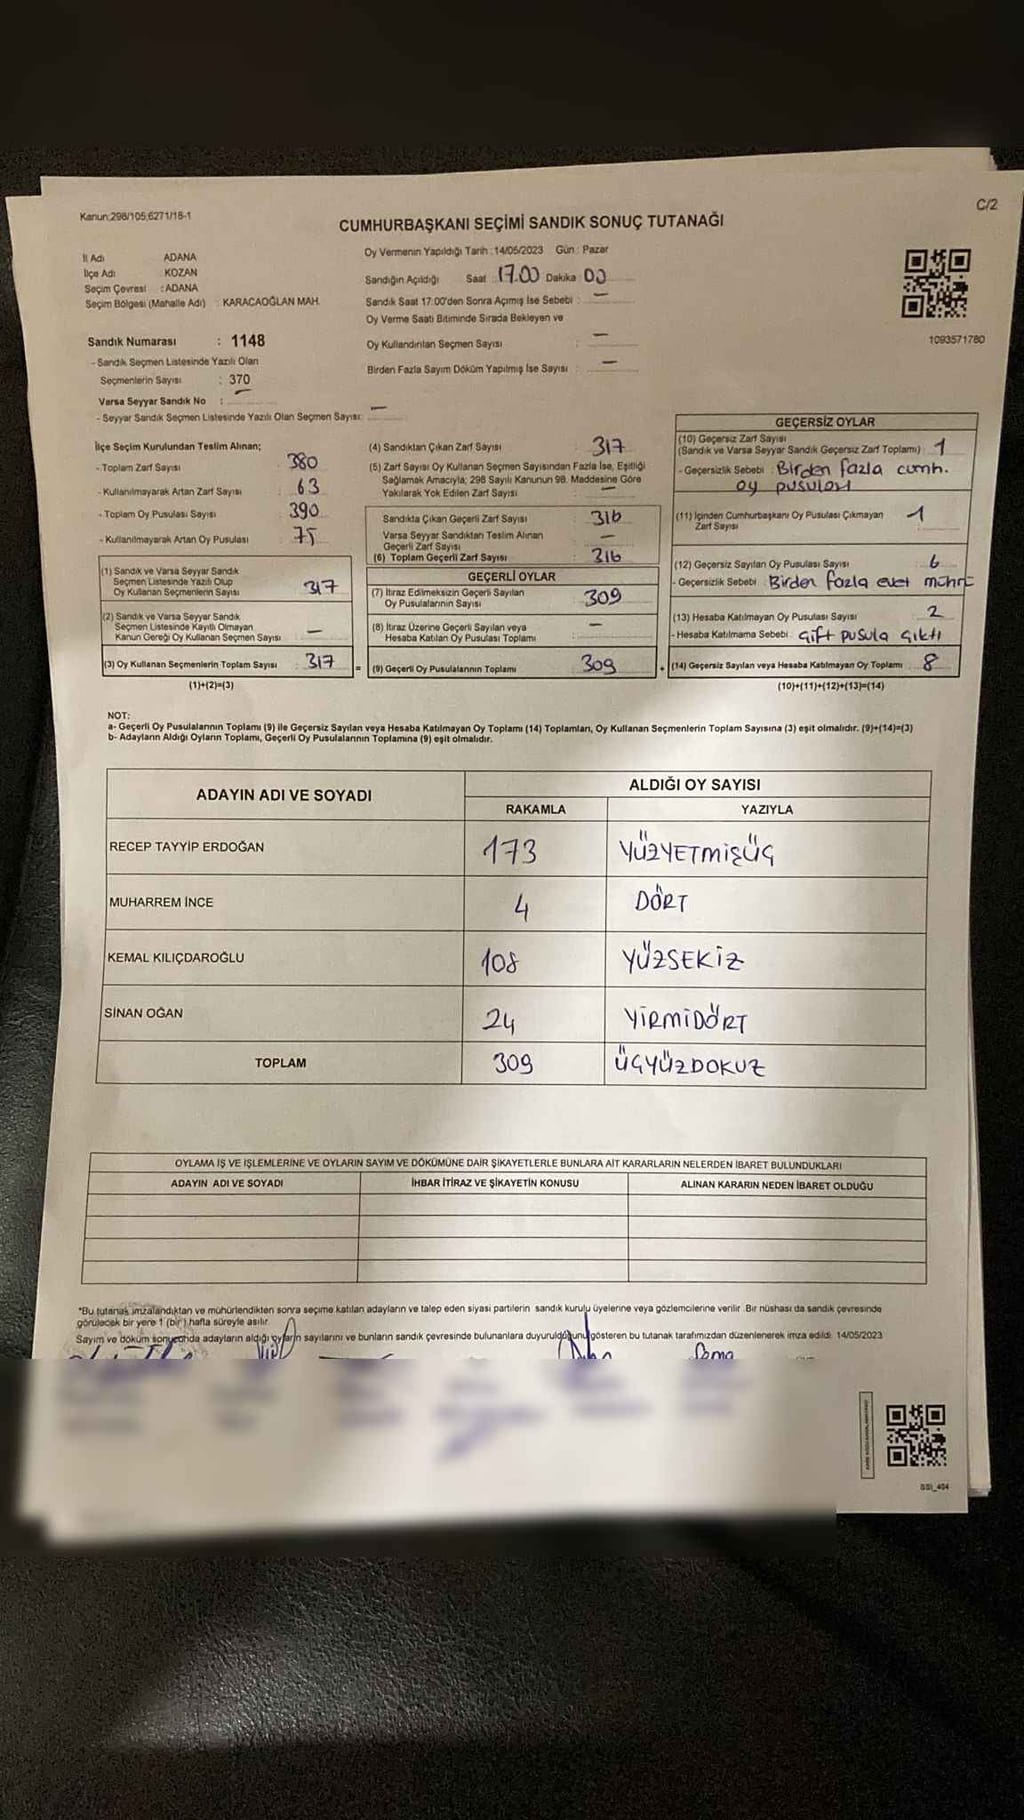 Kanun:298/105;6271/18-1
C/2
CUMHURBAŞKANI SEÇİMİ SANDIK SONUÇ TUTANAĞI
İl Adı ADANA
İlçe Adı KOZAN
Seçim Çevresi : ADANA
Seçim Bölgesi (Mahalle Adı) : KARACAOĞLAN MAH.
Sandık Numarası : 1148
- Sandık Seçmen Listesinde Yazılı Olan
Seçmenlerin Sayısı : 370
Varsa Seyyar Sandık No : —
- Seyyar Sandık Seçmen Listesinde Yazılı Olan Seçmen Sayısı: —
Oy Vermenin Yapıldığı Tarih : 14/05/2023 Gün : Pazar
Sandığın Açıldığı Saat : 17.00 Dakika 00
Sandık Saat 17:00'den Sonra Açımış İse Sebebi : —
Oy Verme Saati Bitiminde Sırada Bekleyen ve
Oy Kullandırılan Seçmen Sayısı : —
Birden Fazla Sayım Döküm Yapılmış İse Sayısı : —
1093571780
İlçe Seçim Kurulundan Teslim Alınan;
- Toplam Zarf Sayısı : 380
- Kullanılmayarak Artan Zarf Sayısı : 63
- Toplam Oy Pusulası Sayısı : 390
- Kullanılmayarak Artan Oy Pusulası : 75
(1) Sandık ve Varsa Seyyar Sandık
Seçmen Listesinde Yazılı Olup
Oy Kullanan Seçmenlerin Sayısı : 317
(2) Sandık ve Varsa Seyyar Sandık
Seçmen Listesinde Kayıtlı Olmayan
Kanun Gereği Oy Kullanan Seçmen Sayısı : —
(3) Oy Kullanan Seçmenlerin Toplam Sayısı : 317
(1)+(2)=(3)
(4) Sandıktan Çıkan Zarf Sayısı : 317
(5) Zarf Sayısı Oy Kullanan Seçmen Sayısından Fazla İse, Eşitliği
Sağlamak Amacıyla; 298 Sayılı Kanunun 98. Maddesine Göre
Yakılarak Yok Edilen Zarf Sayısı : —
Sandıkta Çıkan Geçerli Zarf Sayısı : 316
Varsa Seyyar Sandıktan Teslim Alınan
Geçerli Zarf Sayısı : —
(6) Toplam Geçerli Zarf Sayısı : 316
GEÇERLİ OYLAR
(7) İtiraz Edilmeksizin Geçerli Sayılan
Oy Pusulalarının Sayısı : 309
(8) İtiraz Üzerine Geçerli Sayılan veya
Hesaba Katılan Oy Pusulası Toplamı : —
= (9) Geçerli Oy Pusulalarının Toplamı : 309 +
GEÇERSİZ OYLAR
(10) Geçersiz Zarf Sayısı
(Sandık ve Varsa Seyyar Sandık Geçersiz Zarf Toplamı) : 1
- Geçersizlik Sebebi : Birden fazla cumh.
oy pusulası
(11) İçinden Cumhurbaşkanı Oy Pusulası Çıkmayan
Zarf Sayısı : 1
(12) Geçersiz Sayılan Oy Pusulası Sayısı : 6
- Geçersizlik Sebebi : Birden fazla evet mührü
(13) Hesaba Katılmayan Oy Pusulası Sayısı : 2
- Hesaba Katılmama Sebebi : Çift pusula çıktı
(14) Geçersiz Sayılan veya Hesaba Katılmayan Oy Toplamı : 8
(10)+(11)+(12)+(13)=(14)
NOT:
a- Geçerli Oy Pusulalarının Toplamı (9) ile Geçersiz Sayılan veya Hesaba Katılmayan Oy Toplamı (14) Toplamları, Oy Kullanan Seçmenlerin Toplam Sayısına (3) eşit olmalıdır. (9)+(14)=(3)
b- Adayların Aldığı Oyların Toplamı, Geçerli Oy Pusulalarının Toplamına (9) eşit olmalıdır.
ADAYIN ADI VE SOYADI ALDIĞI OY SAYISI
RAKAMLA YAZIYLA
RECEP TAYYİP ERDOĞAN 173 YÜZYETMİŞÜÇ
MUHARREM İNCE 4 DÖRT
KEMAL KILIÇDAROĞLU 108 YÜZSEKİZ
SİNAN OĞAN 24 YİRMİDÖRT
TOPLAM 309 ÜÇYÜZDOKUZ
OYLAMA İŞ VE İŞLEMLERİNE VE OYLARIN SAYIM VE DÖKÜMÜNE DAİR ŞİKAYETLERLE BUNLARA AİT KARARLARIN NELERDEN İBARET BULUNDUKLARI
ADAYIN ADI VE SOYADI İHBAR İTİRAZ VE ŞİKAYETİN KONUSU ALINAN KARARIN NEDEN İBARET OLDUĞU
*Bu tutanak imzalandıktan ve mühürlendikten sonra seçime katılan adayların ve talep eden siyasi partilerin sandık kurulu üyelerine veya gözlemcilerine verilir. Bir nüshası da sandık çevresinde
görülecek bir yere 1 (bir) hafta süreyle asılır.
Sayım ve döküm sonucunda adayların aldığı oyların sayılarını ve bunların sandık çevresinde bulunanlara duyurulduğunu gösteren bu tutanak tarafımızdan düzenlenerek imza edildi. 14/05/2023
SSI_404